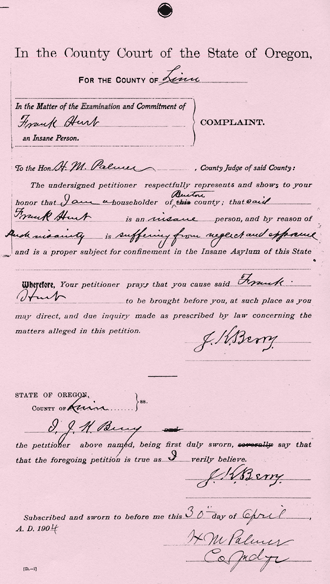 In the County Court of the State of Oregon,
FOR THE COUNTY OF Linn
In the Matter of the Examination and Commitment of
Frank Hurt
an Insane Person.
COMPLAINT.
To the Hon. H. M. Palmer, County Judge of said County:
The undersigned petitioner respectfully represents and shows to your
Benton
honor that I am a householder of this county; that said
Frank Hurt is an insane person, and by reason of
such insanity is suffering from neglect and exposure
and is a proper subject for confinement in the Insane Asylum of this State
Wherefore, Your petitioner prays that you cause said Frank
Hurt to be brought before you, at such place as you
may direct, and due inquiry made as prescribed by law concerning the
matters alleged in this petition.
J. K Berry
STATE OF OREGON,
COUNTY OF Linn } ss.
I, J. K. Berry
the petitioner above named, being first duly sworn, severally say that
that the foregoing petition is true as I verily believe.
J. K. Berry.
Subscribed and sworn to before me this 30th day of April,
A. D. 1904
H M Palmer
Co Judge